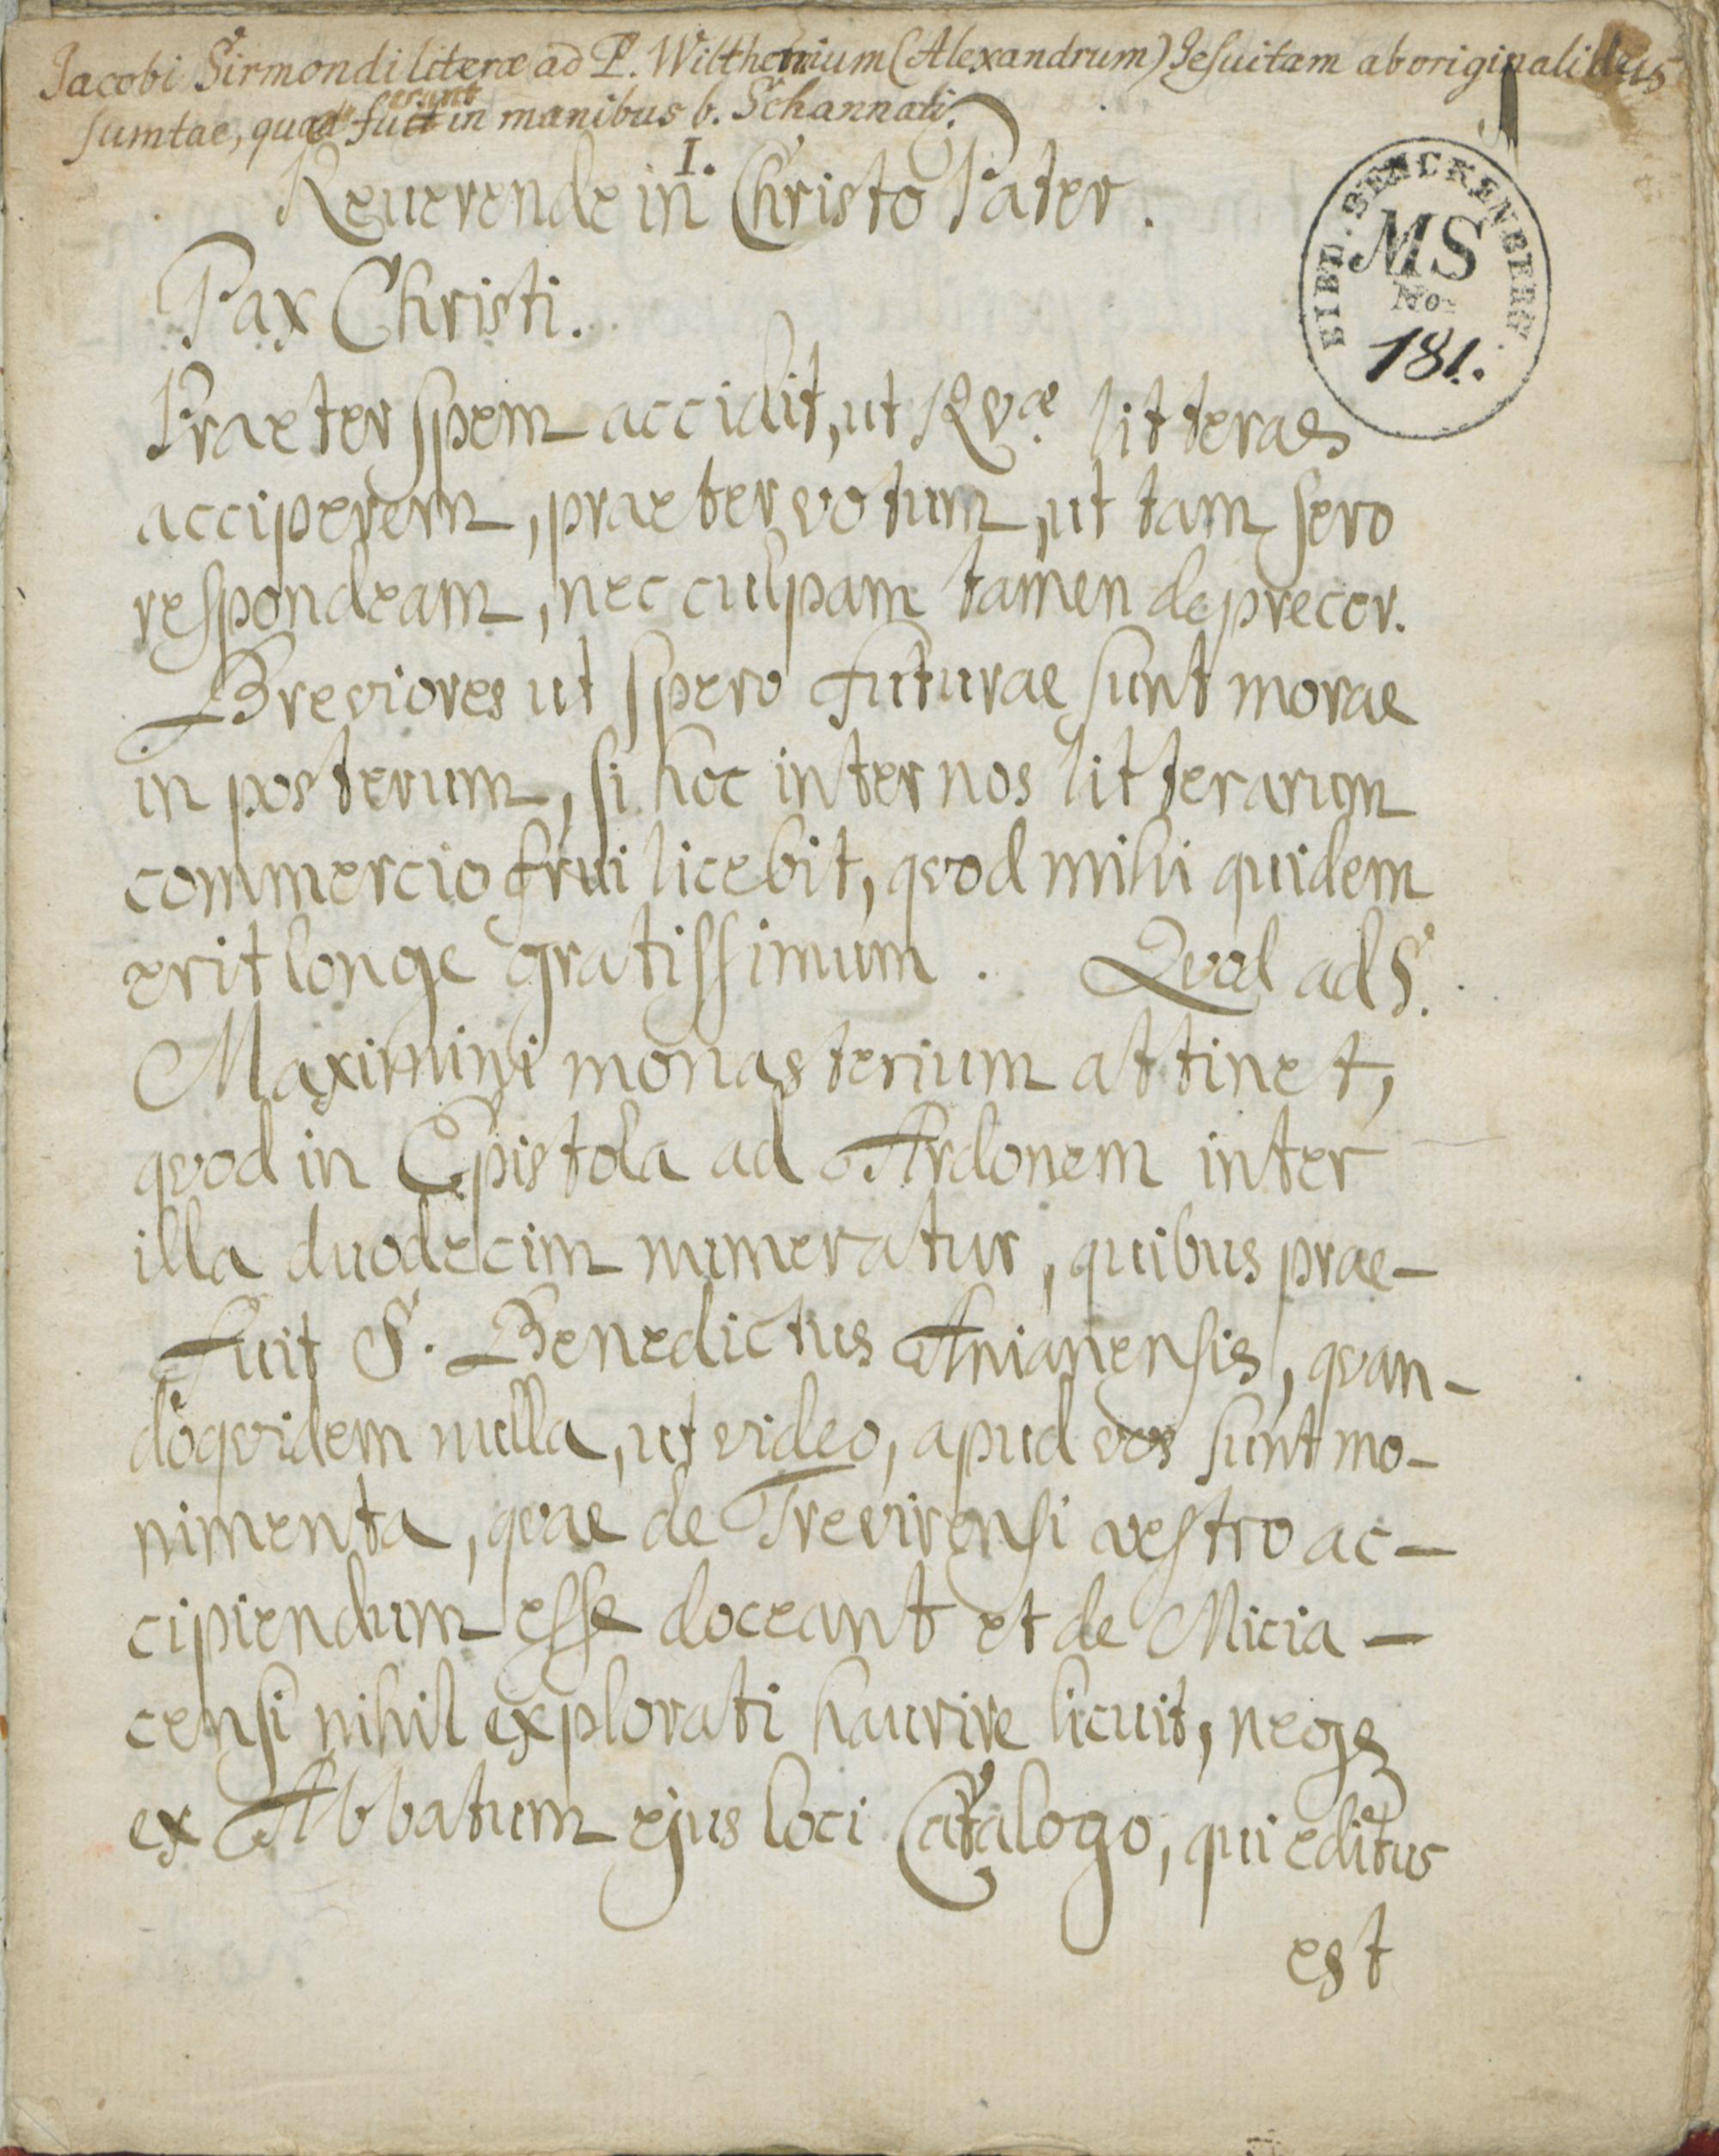 Jacobi Sirmondi literae ad P. Wilthemium (Alexandrum) Jesuitam ab originalibus
sumtae, quae fuerunt in manibus b. Schannati.
I.
Reuerende in Christo Pater.
BIBL. SENCKENBERG.
MS
No.
181.
Pax Christi.
Praeter spem accidit, ut R Væ litteras
acciperem, praeter votum, ut tam sero
respondeam, nec culpam tamen deprecor.
Breviores ut spero futurae sunt morae
in posterum, si hoc inter nos litterarum
commercio frui licebit, qvod mihi quidem
erit longe gratissimum. Qvod ad S.
Maximini monasterium attinet,
qvod in Epistola ad Ardonem inter
illa duodecim numeratur, quibus prae-
fuit S. Benedictus Anianensis, qvan-
doqvidem nulla, ut video, apud vos sunt mo-
nimenta, qvae de Trevirensi vestro ac-
cipiendum esse doceant et de Micia-
censi nihil explorati haurire licuit, neqe
ex Abbatum ejus loci Catalogo, qui editus
est